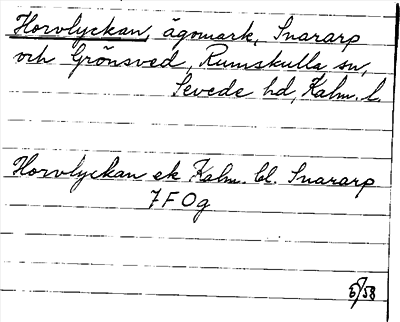 Horvlyckan, ägomark, Snararp
och Grönsved, Rumskulla sn,
Sevede hd, Kalm. l.
Horvlyckan ek Kalm. bl. Snararp
7 F O g
5/58